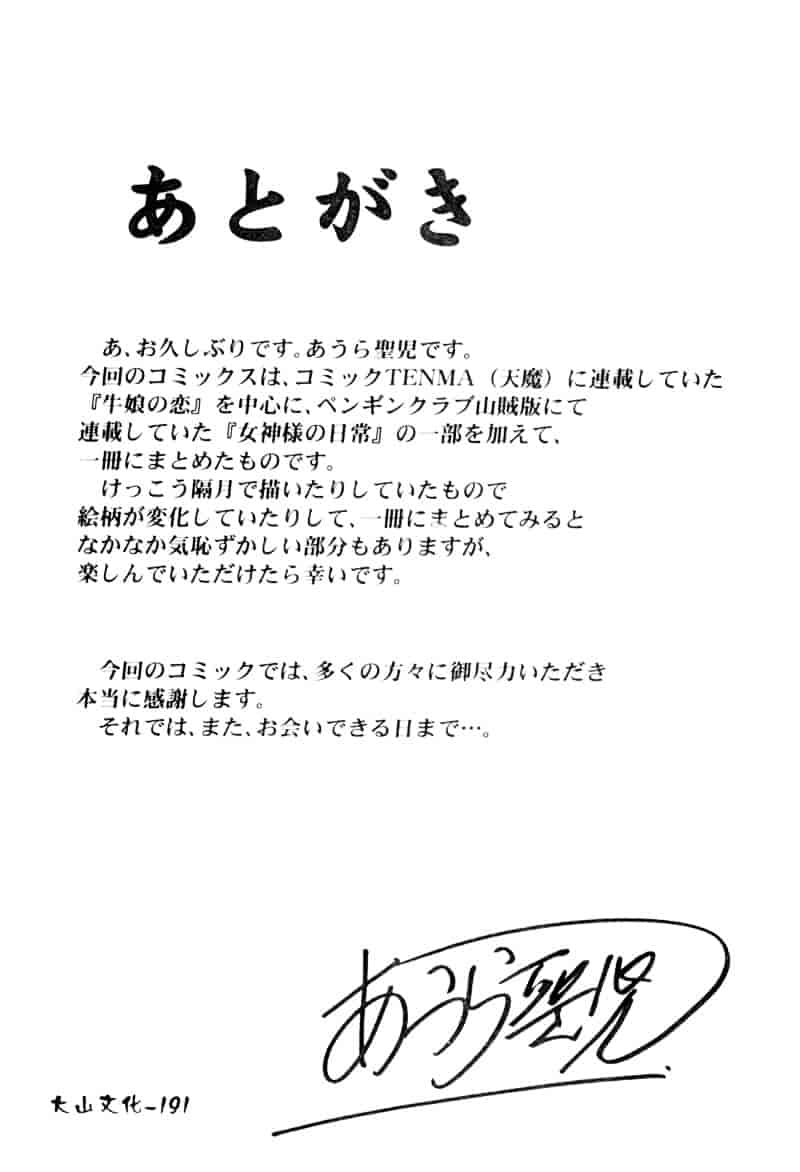 あとがき
あ、お久しぶりです。あうら聖児です。
今回のコミックスは、コミックTENMA（天魔）に連載していた
『牛娘の恋』を中心に、ペンギンクラブ山賊版にて
連載していた『女神様の日常』の一部を加えて、
一冊にまとめたものです。
けっこう隔月で描いたりしていたもので
絵柄が変化していたりして、一冊にまとめてみると
なかなか気恥ずかしい部分もありますが、
楽しんでいただけたら幸いです。
今回のコミックでは、多くの方々に御尽力いただき
本当に感謝します。
それでは、また、お会いできる日まで…。
あうら聖児
大山文化-191